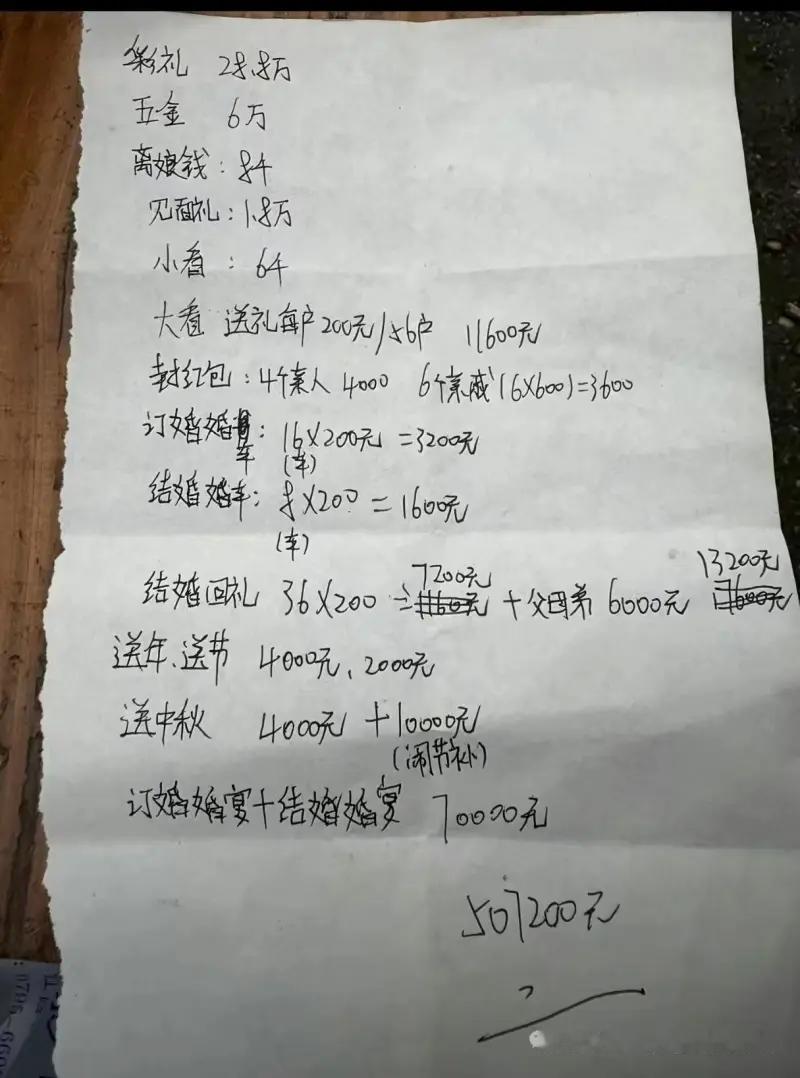 彩礼 28.8万
五金 6万
离娘钱：8千
见面礼：1.8万
小看：6千
大看 送礼每户200元/56户 11600元
封红包：4个亲人 4000 6个亲戚(6×600)=3600
订婚婚车：16×200元=3200元
(车)
结婚婚车：8×200=1600元
(车)
结婚回礼 36×200=7200元+父母弟6000元 13200元
送年、送节 4000元、2000元
送中秋 4000元+10000元
(闹节补)
订婚婚宴+结婚婚宴 70000元
507200元